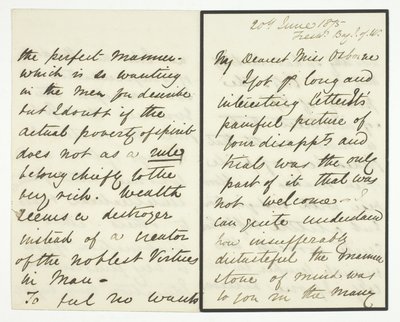 20th June 1875
My Dearest Miss Osborne
I got yr long and
interesting letter. Its
painful picture of
your disappts and
trials was the only
part of it that was
not welcome. I
can quite understand
how insufferably
distasteful the manner
tone of mind was
to you in the many
the perfect manner.
which is so wanting
in the men you describe
but I doubt if the
actual poverty of spirit
does not as a rule
belong chiefly to the
very rich. Wealth
seems a destroyer
instead of a creator
of the noblest Virtues
in Man -
To feel no wants